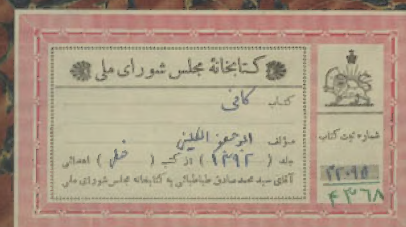 کتابخانهٔ مجلس شورای ملی
کتاب کافی
مؤلف ابوجعفر الکلینی
جلد ( ۱۳۹۲ ) از کتب ( خطی ) اهدائی
آقای سید محمد صادق طباطبائی به کتابخانه مجلس شورای ملی
شماره ثبت کتاب
۲۲۰۹۵
۴۳۶۸